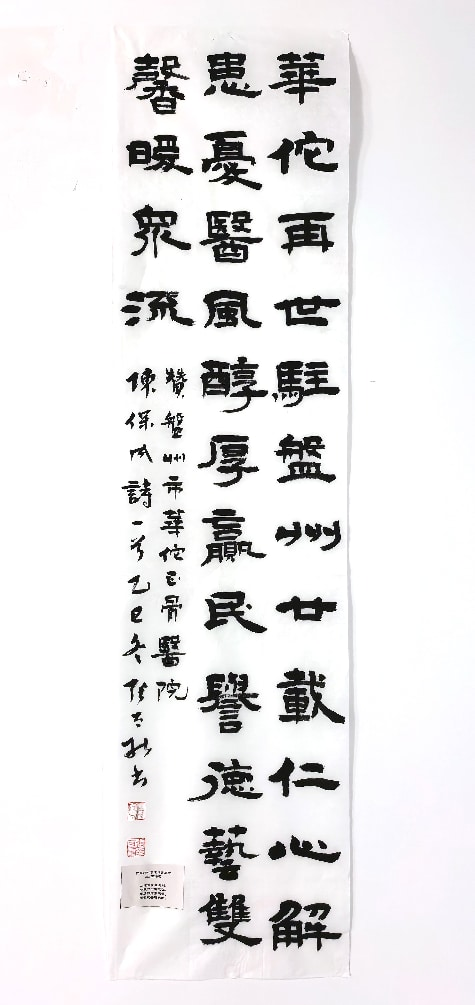 華佗再世駐盤州廿載仁心解
患憂醫風醇厚贏民譽德藝雙
馨暖眾流
贊盤州市華佗正骨醫院
陳保成詩一首乙巳冬